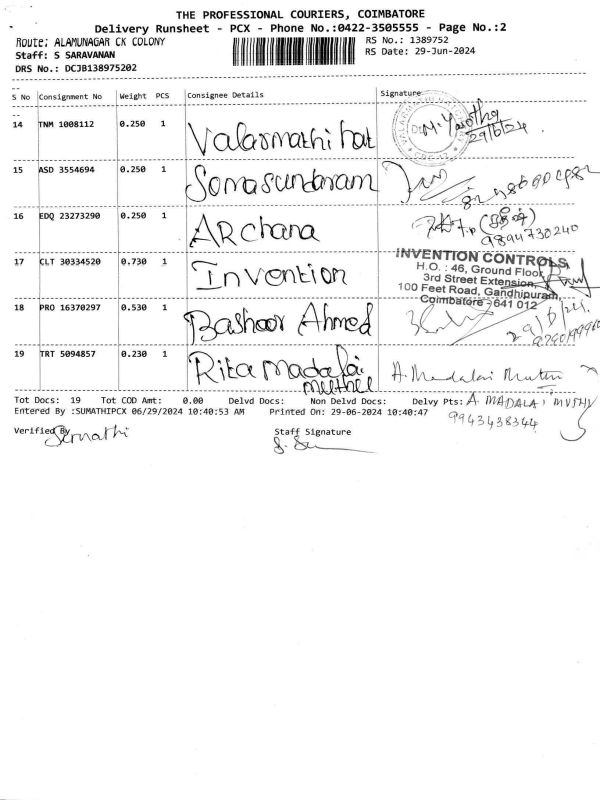 THE PROFESSIONAL COURIERS, COIMBATORE
Delivery Runsheet - PCX - Phone No.:0422-3505555 - Page No.:2
Route: ALAMUNAGAR CK COLONY
RS No.: 1389752
Staff: S SARAVANAN
RS Date: 29-Jun-2024
DRS No.: DCJB138975202
S No Consignment No Weight PCS Consignee Details Signature
14 TNM 1008112 0.250 1 Valarmathi hat
29/6/24
15 ASD 3554694 0.250 1 Somasundaram
16 EDQ 23273290 0.250 1 ARchana
9894730240
17 CLT 30334520 0.730 1 Invention
INVENTION CONTROLS,
H.O. : 46, Ground Floor,
3rd Street Extension,
100 Feet Road, Gandhipuram,
Coimbatore - 641 012
18 PRO 16370297 0.530 1 Bashoor Ahmed
29/6/24
19 TRT 5094857 0.230 1 Rita Madalai
muthee
A. Madalai Muthu
Tot Docs: 19 Tot COD Amt: 0.00 Delvd Docs: Non Delvd Docs: Delvy Pts: A. MADALAI MUTHU
Entered By :SUMATHIPCX 06/29/2024 10:40:53 AM Printed On: 29-06-2024 10:40:47
9943438344
Verified By Staff Signature
Sumathi